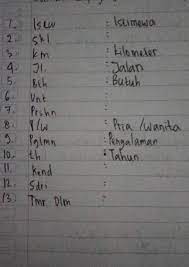 1. Istw : Istimewa
2. Skl :
3. Km : Kilometer
4. Jl. : Jalan
5. Bth : Butuh
6. Unt :
7. Prshn :
8. P/w : Pria /wanita
9. Pglmn : Pengalaman
10. th : Tahun
11. Kend
12. Sdri :
13) Tmr. Dlm :